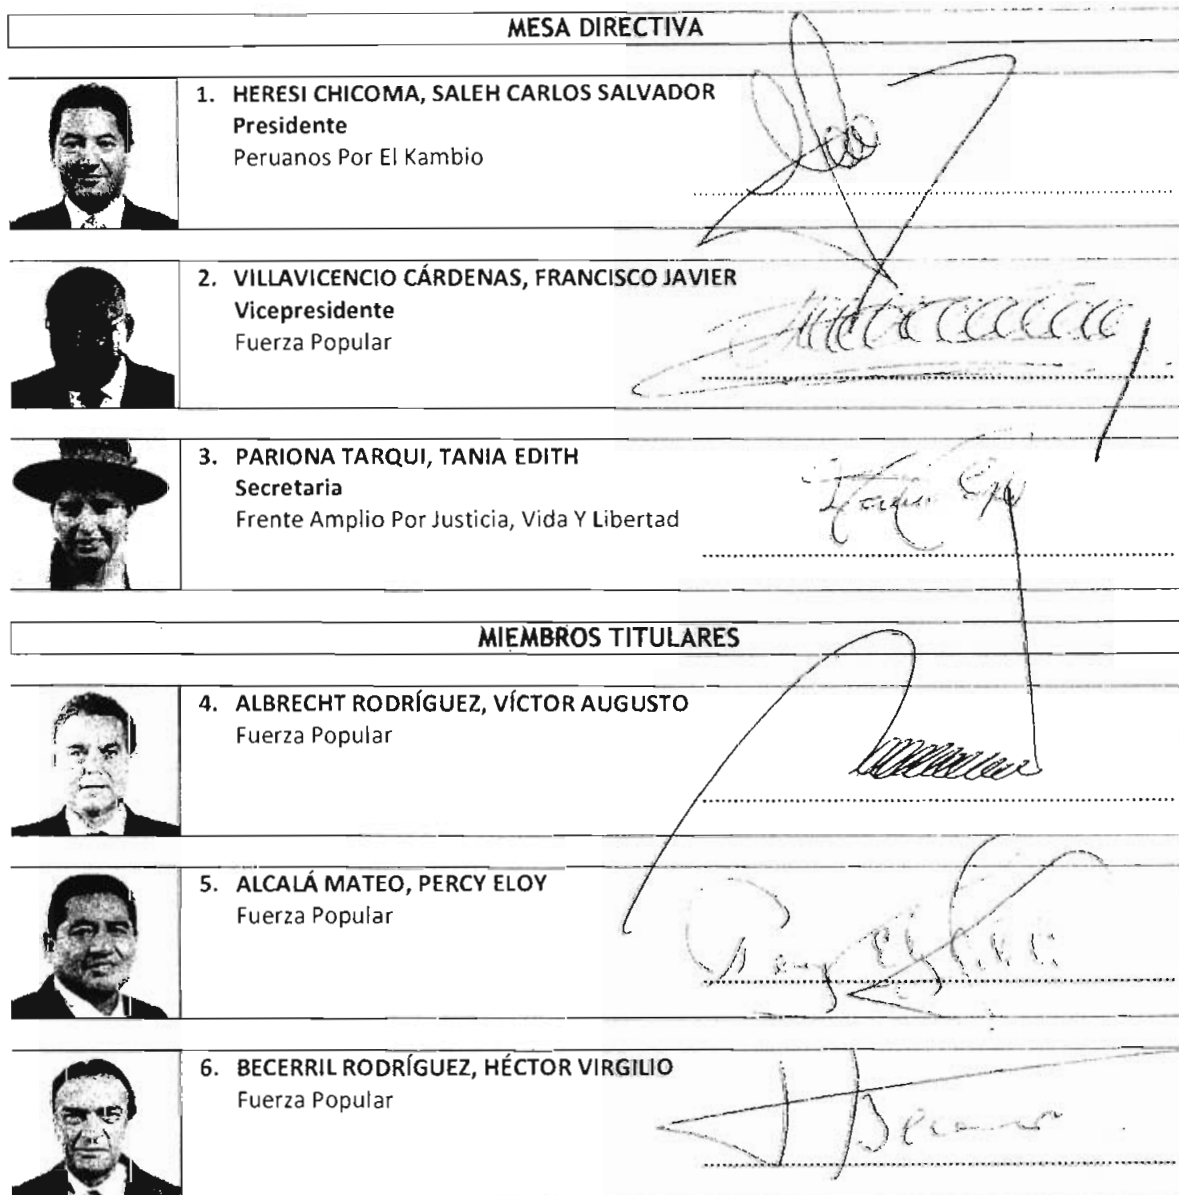 MESA DIRECTIVA
1. HERESI CHICOMA, SALEH CARLOS SALVADOR
Presidente
Peruanos Por El Kambio
2. VILLAVICENCIO CÁRDENAS, FRANCISCO JAVIER
Vicepresidente
Fuerza Popular
3. PARIONA TARQUI, TANIA EDITH
Secretaria
Frente Amplio Por Justicia, Vida Y Libertad
MIEMBROS TITULARES
4. ALBRECHT RODRÍGUEZ, VÍCTOR AUGUSTO
Fuerza Popular
5. ALCALÁ MATEO, PERCY ELOY
Fuerza Popular
6. BECERRIL RODRÍGUEZ, HÉCTOR VIRGILIO
Fuerza Popular